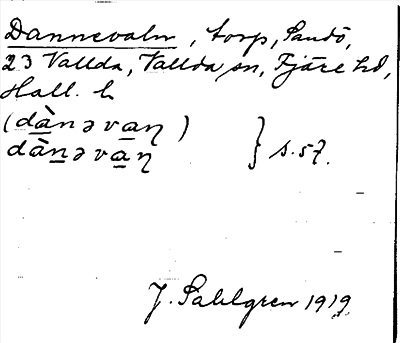 Dannevaln, torp, Sandö,
23 Vallda, Vallda sn, Fjäre hd,
Hall. l.
(dànəvaɳ)
dànəvaɳ } s. 57.
J. Sahlgren 1919.